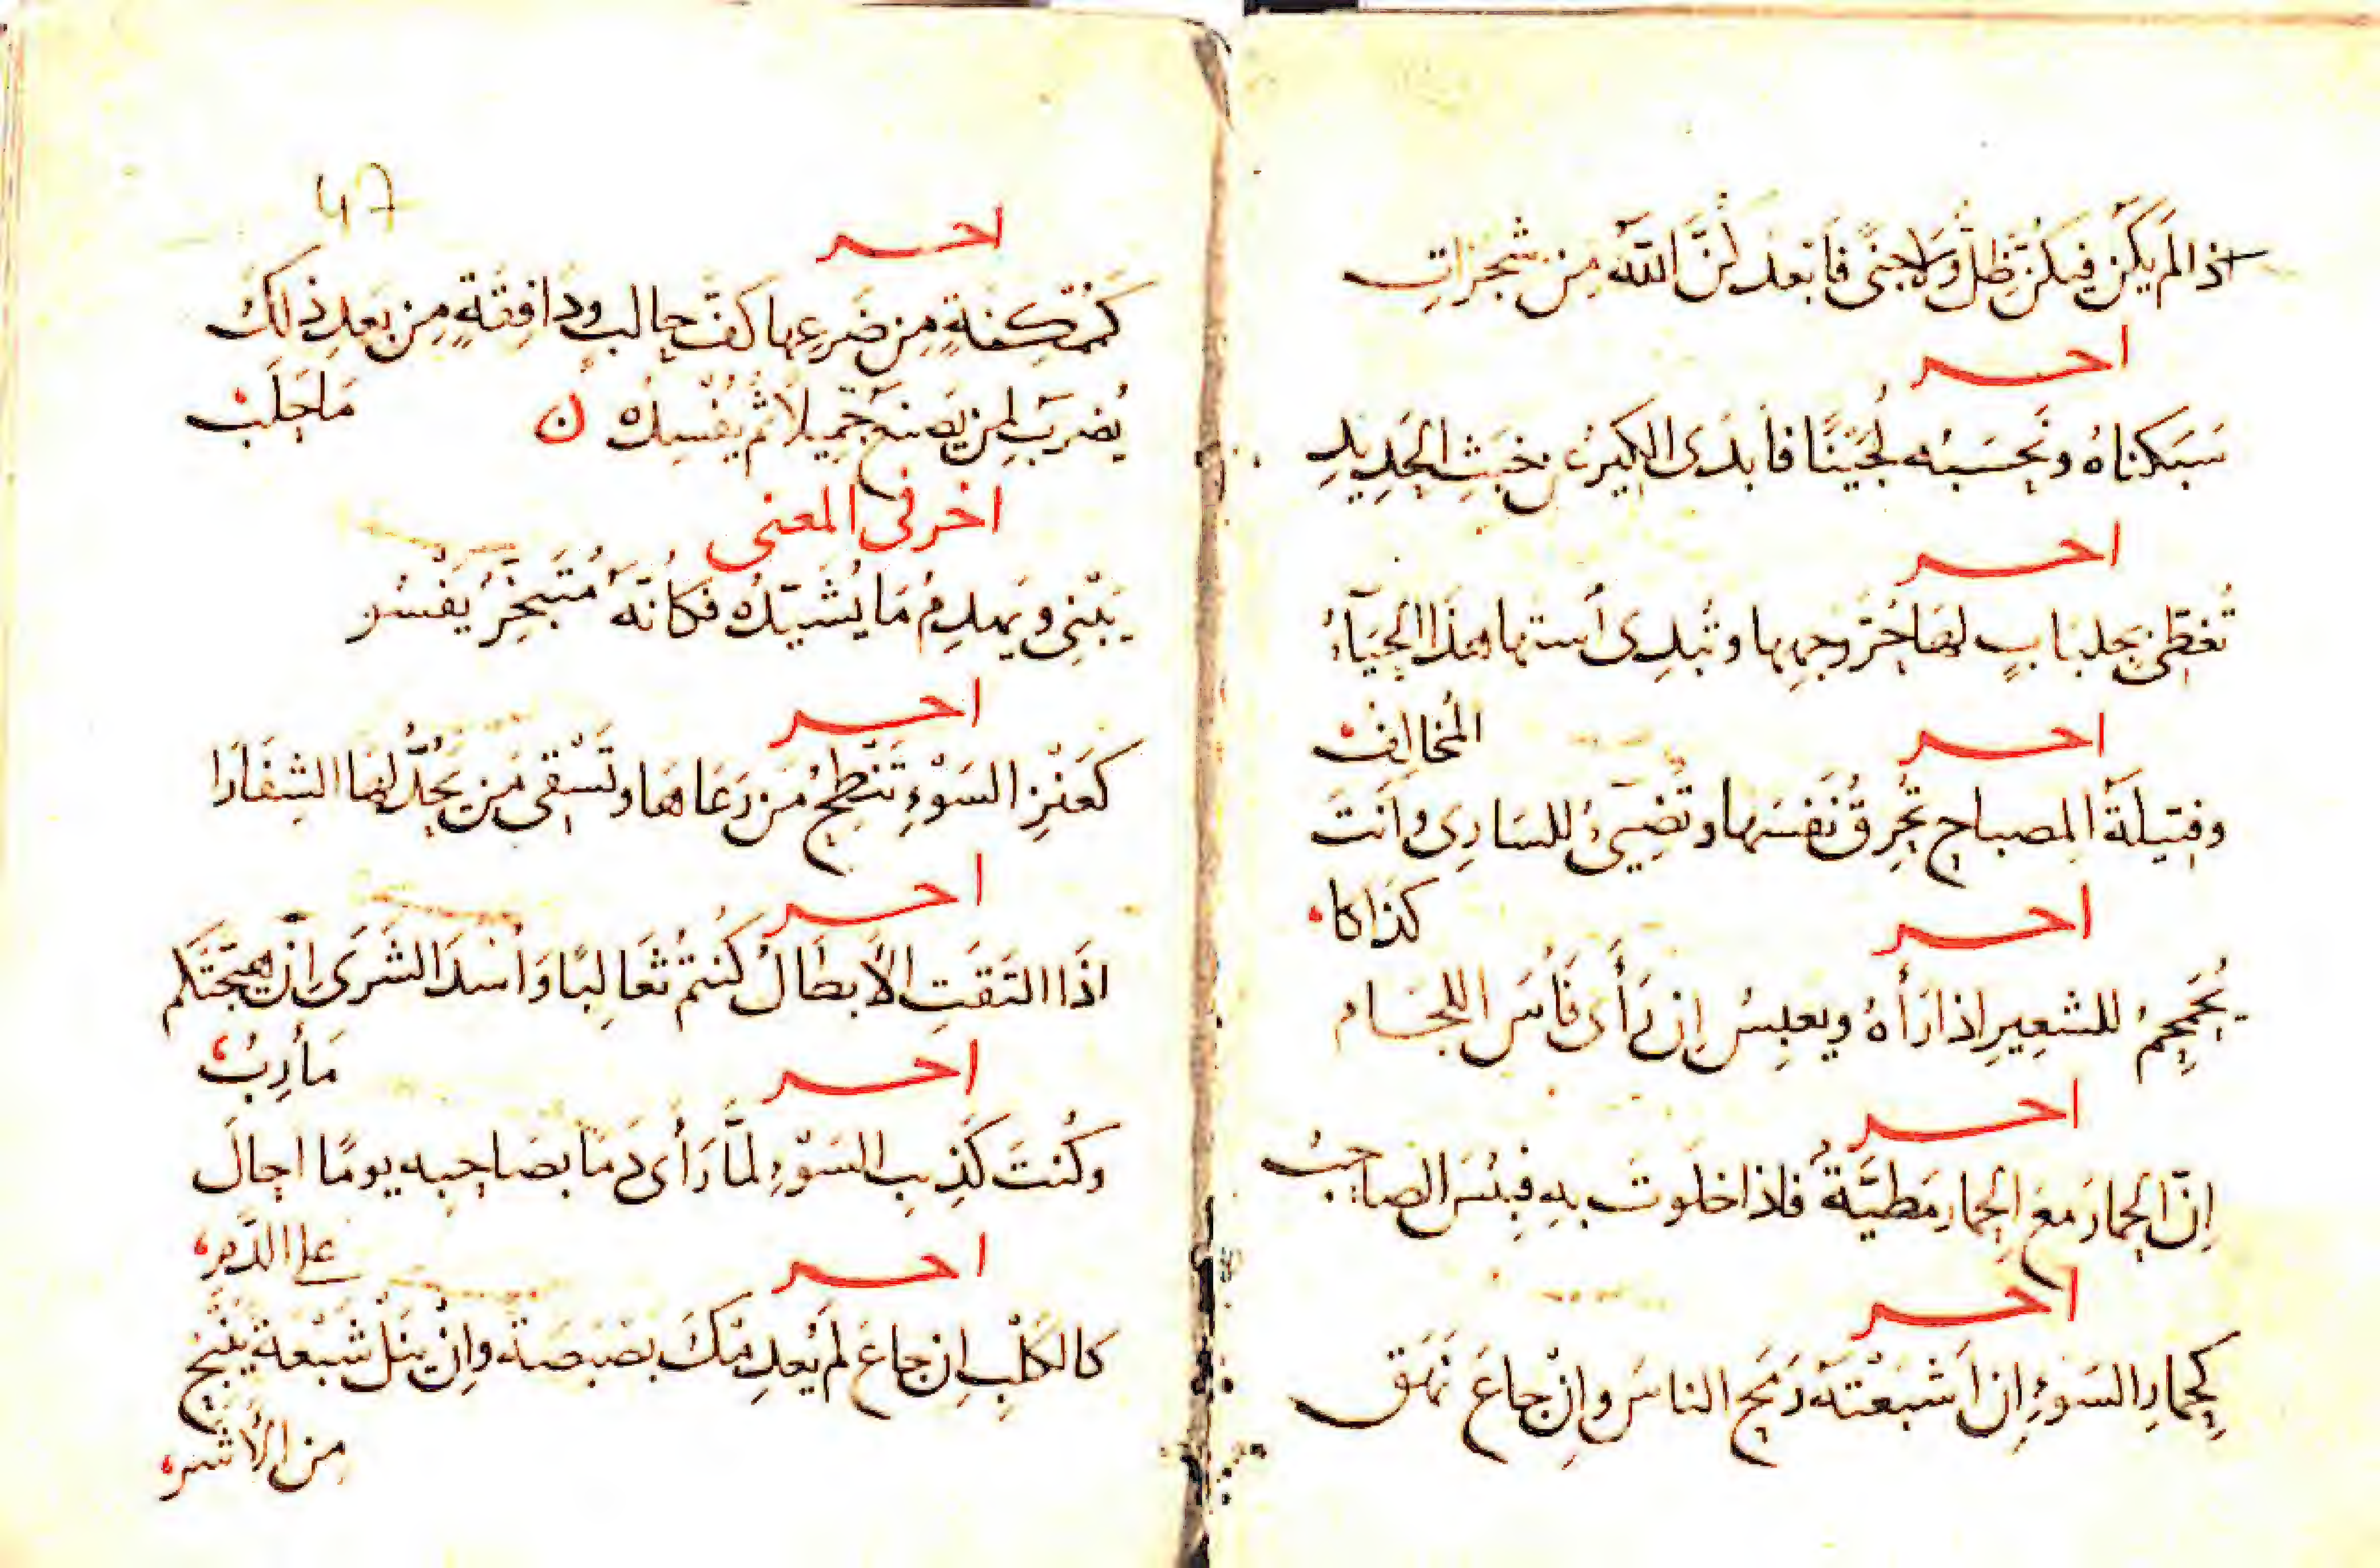 اذا لم يكن فيكن ظل ولا جنى فابعدكن الله من شجرات
اخر
سَبَكناهُ ونحسَبُه لُجَينًا فابدَى الكِيرُ عن خبَثِ الحَدِيدِ
اخر
تُغطى بجلبابٍ لها حُرَّ وجهِها وتُبدِى أستها هذا الحيَآءُ
المُخالِفُ
اخر
وفتيلَةُ المصباح تُحرِقُ نَفسَها وتُضِيئُ للسَارِى وَانتَ
كذَاكا
اخر
يُحَمحِمُ للشعِيرِ اذا رَأهُ ويعبِسُ إن رَأَى فَأسَ اللجَام
اخر
اِنّ الحِمارَ معَ الحِمارِ مَطيَّةٌ فاذا خلَوتَ بهِ فبِئسَ الصاحِبُ
اخر
كحِمارِ السَوءِ اِن اَشبَعْتَهُ رَمَحَ الناسَ واِنْ جاعَ نَهَق
47
اخر
كمُمْكِنةٍ مِن ضَرعِها كفَّ حالبٍ ودَافِقةٍ مِن بَعدِ ذلكَ
مَا حَلَبْ
يُضرَبُ لمن يَصنعُ جَمِيلًا ثُم يُفْسِدُه ن
اخر فى المعنى
يَبْنِى ويَهدِمُ مَا يُشَيّدُهُ فكأنّهُ مُتَبخِّرٌ يَفْسُو
اخر
كعَنْزِ السَوْءِ تَنْطِحُ مَن رَعَاهَا وتَسْقى مَن يَحُدُّ لهَا الشِفَارَا
اخر
اذَا التَقَتِ الأبطَالُ كُنتمُ ثعَالِبًا وَاُسْدَ الشَرَى اِنْ هيّجَتكم
مَأرِبُ
اخر
وكُنتَ كَذِيبِ السَوْءِ لمّا رَأى دَمَا بصَاحِبه يومًا احالَ
على الدَّمِ
اخر
كالكَلْبِ اِن جاعَ لم يُعدِمْكَ بصَبَصَةً واِنْ يَنَلْ شَبْعَةً يَنْبَحْ
مِن الأَشَرِ